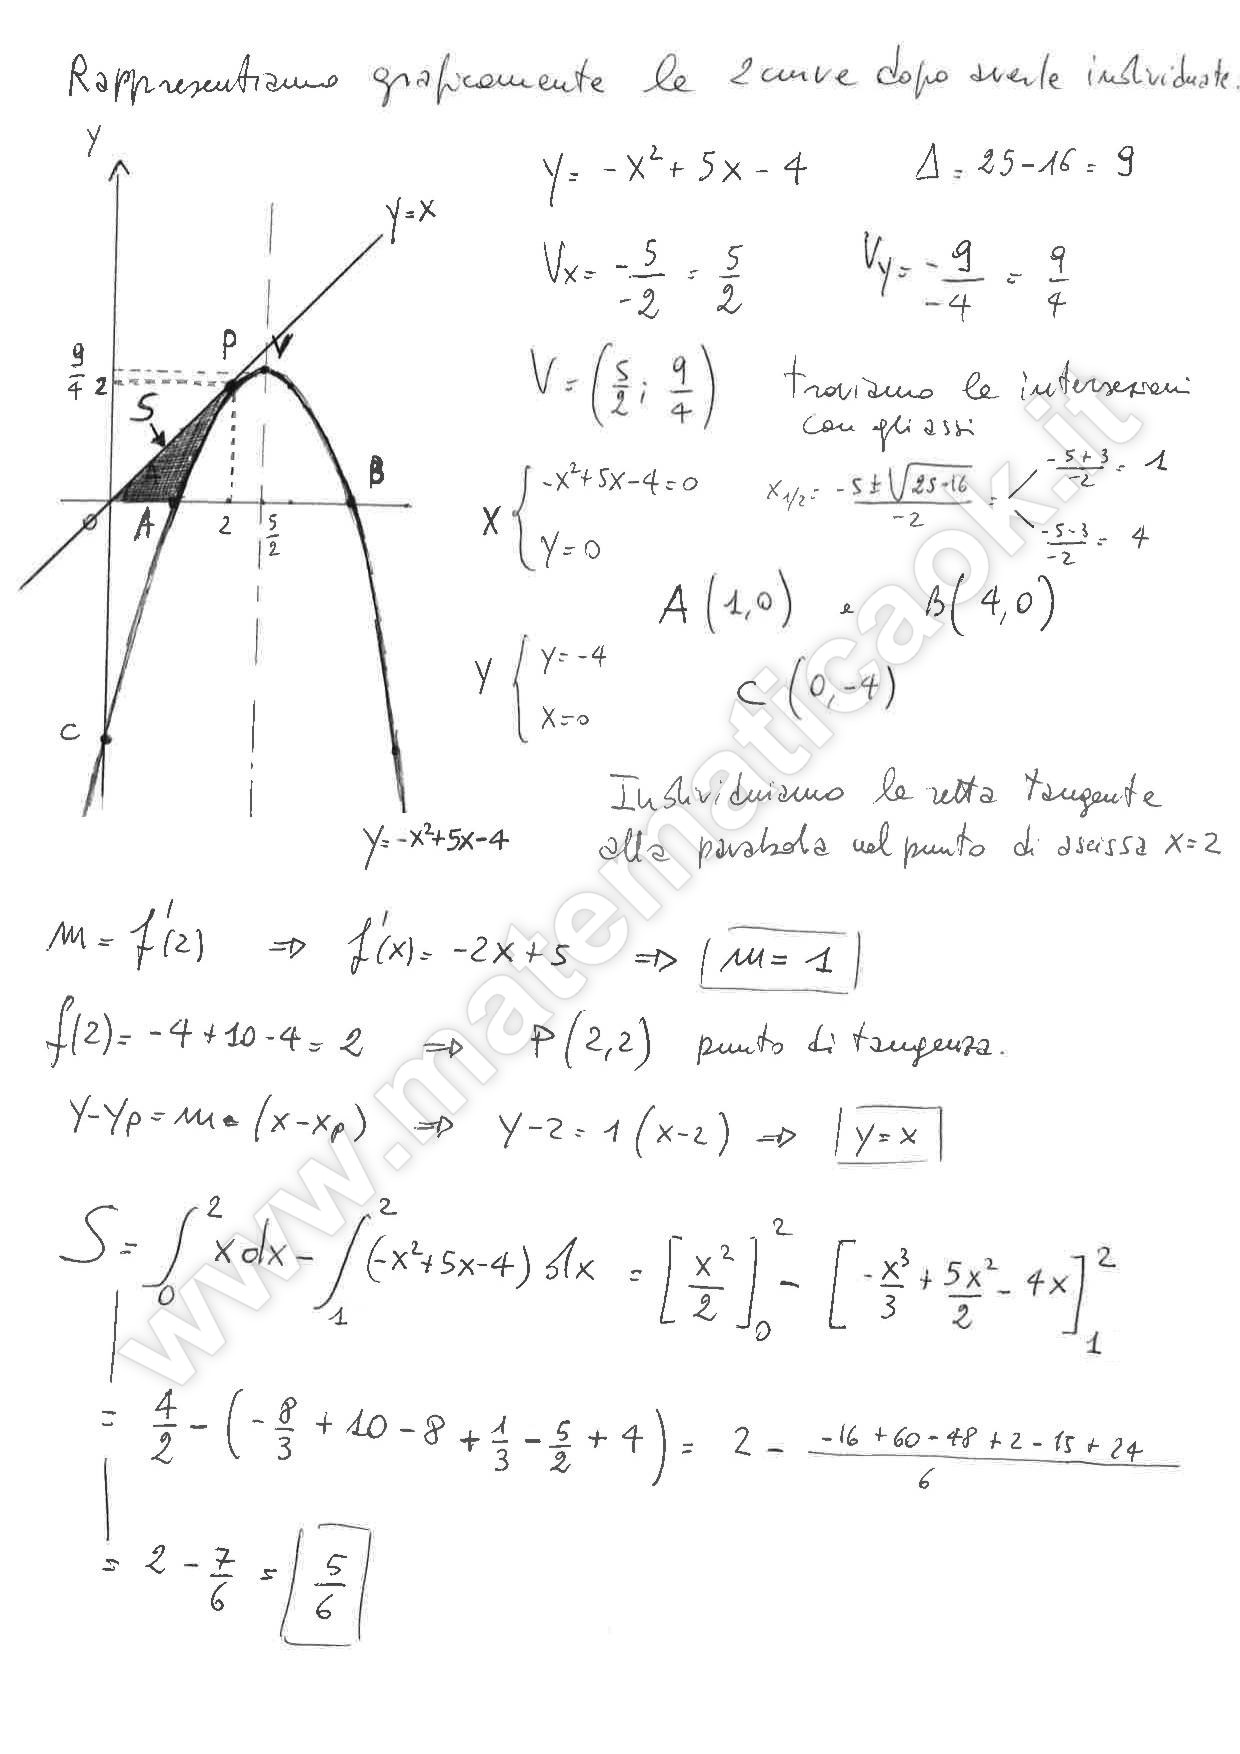 Rappresentiamo graficamente le 2 curve dopo averle individuate.
Y
Y=X
9/4
2
P
V
S
B
O
A
2
5/2
C
Y=-X²+5X-4
Y= -X²+5X-4    Δ=25-16=9
Vx= -5/-2 = 5/2    Vy= -9/-4 = 9/4
V=(5/2; 9/4)    troviamo le intersezioni
con gli assi
X { -X²+5X-4=0    X1/2= -5±√25-16/-2 = -5+3/-2 = 1
Y=0    -5-3/-2 = 4
A(1,0) e B(4,0)
Y { Y=-4
X=0    C(0,-4)
Individuiamo la retta tangente
alla parabola nel punto di ascissa X=2
m=f'(2) ⇒ f'(x)=-2X+5 ⇒ m=1
f(2)=-4+10-4=2 ⇒ P(2,2) punto di tangenza.
Y-Yp=m•(X-Xp) ⇒ Y-2=1(X-2) ⇒ Y=X
S=∫₀² x dx - ∫₁² (-x²+5x-4) dx = [x²/2]₀² - [-x³/3 + 5x²/2 - 4x]₁²
= 4/2 - (-8/3 + 10 - 8 + 1/3 - 5/2 + 4) = 2 - -16+60-48+2-15+24/6
= 2 - 7/6 = 5/6
www.matematicaok.it